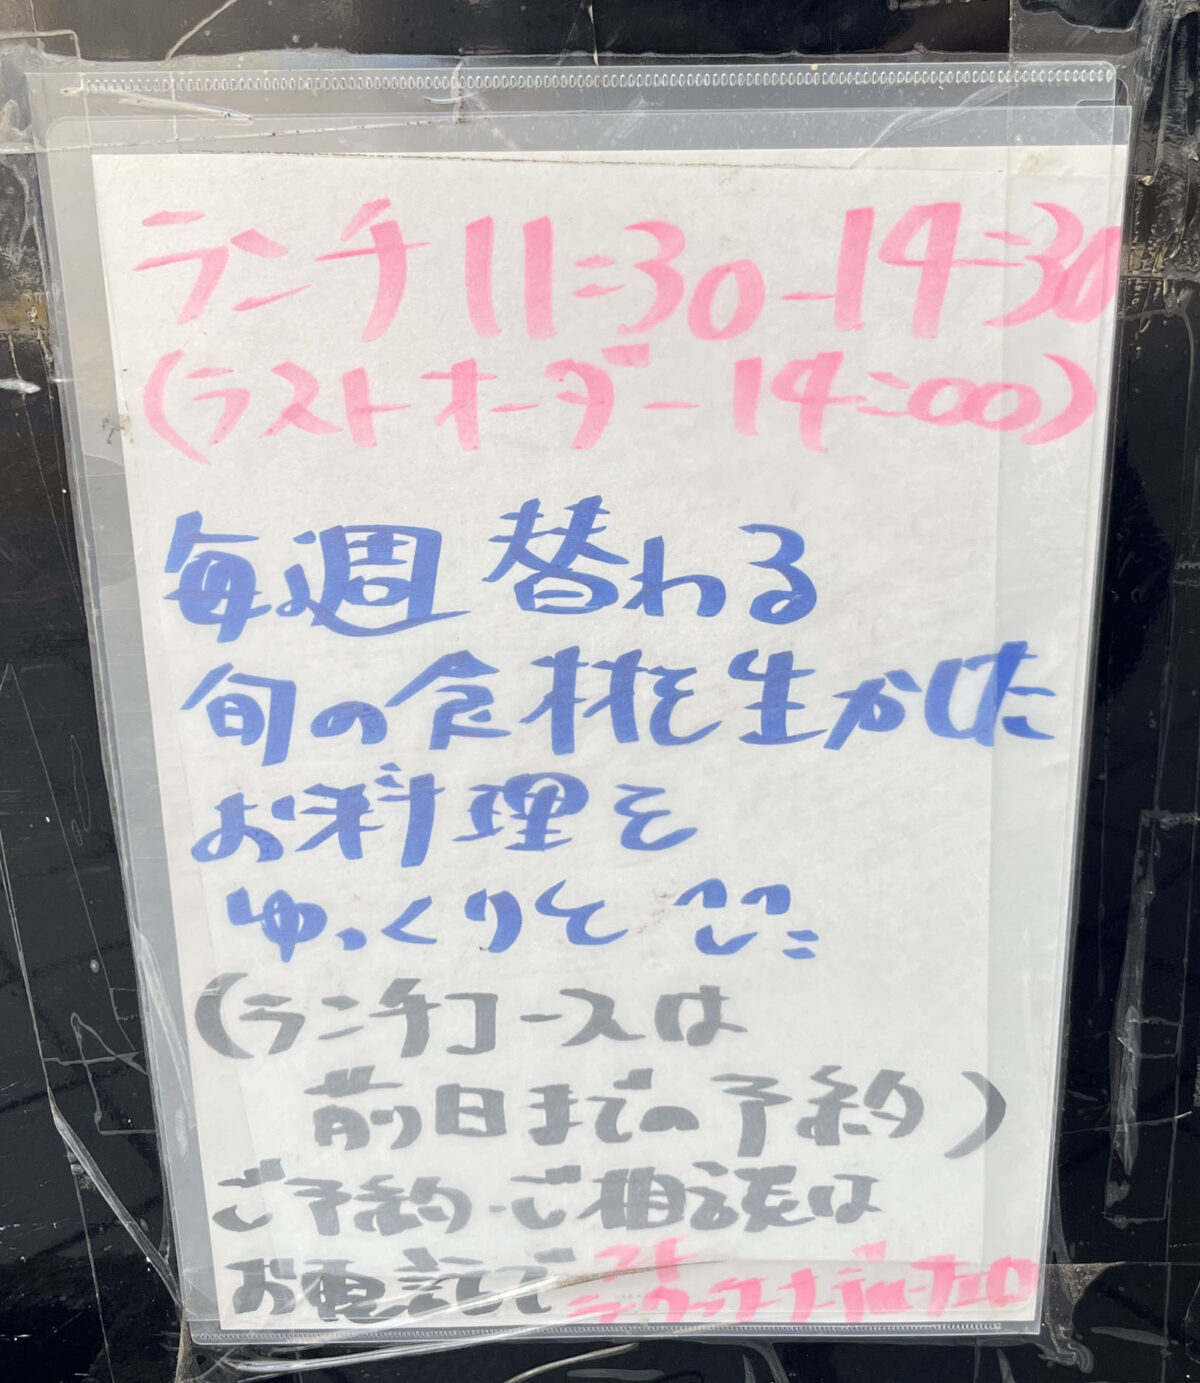 ランチ 11:30-14:30
(ラストオーダー 14:00)
毎週替わる
旬の食材を生かした
お料理を
ゆっくりと ここで
(ランチコースは
前日までの予約)
ご予約・ご相談は
お電話で